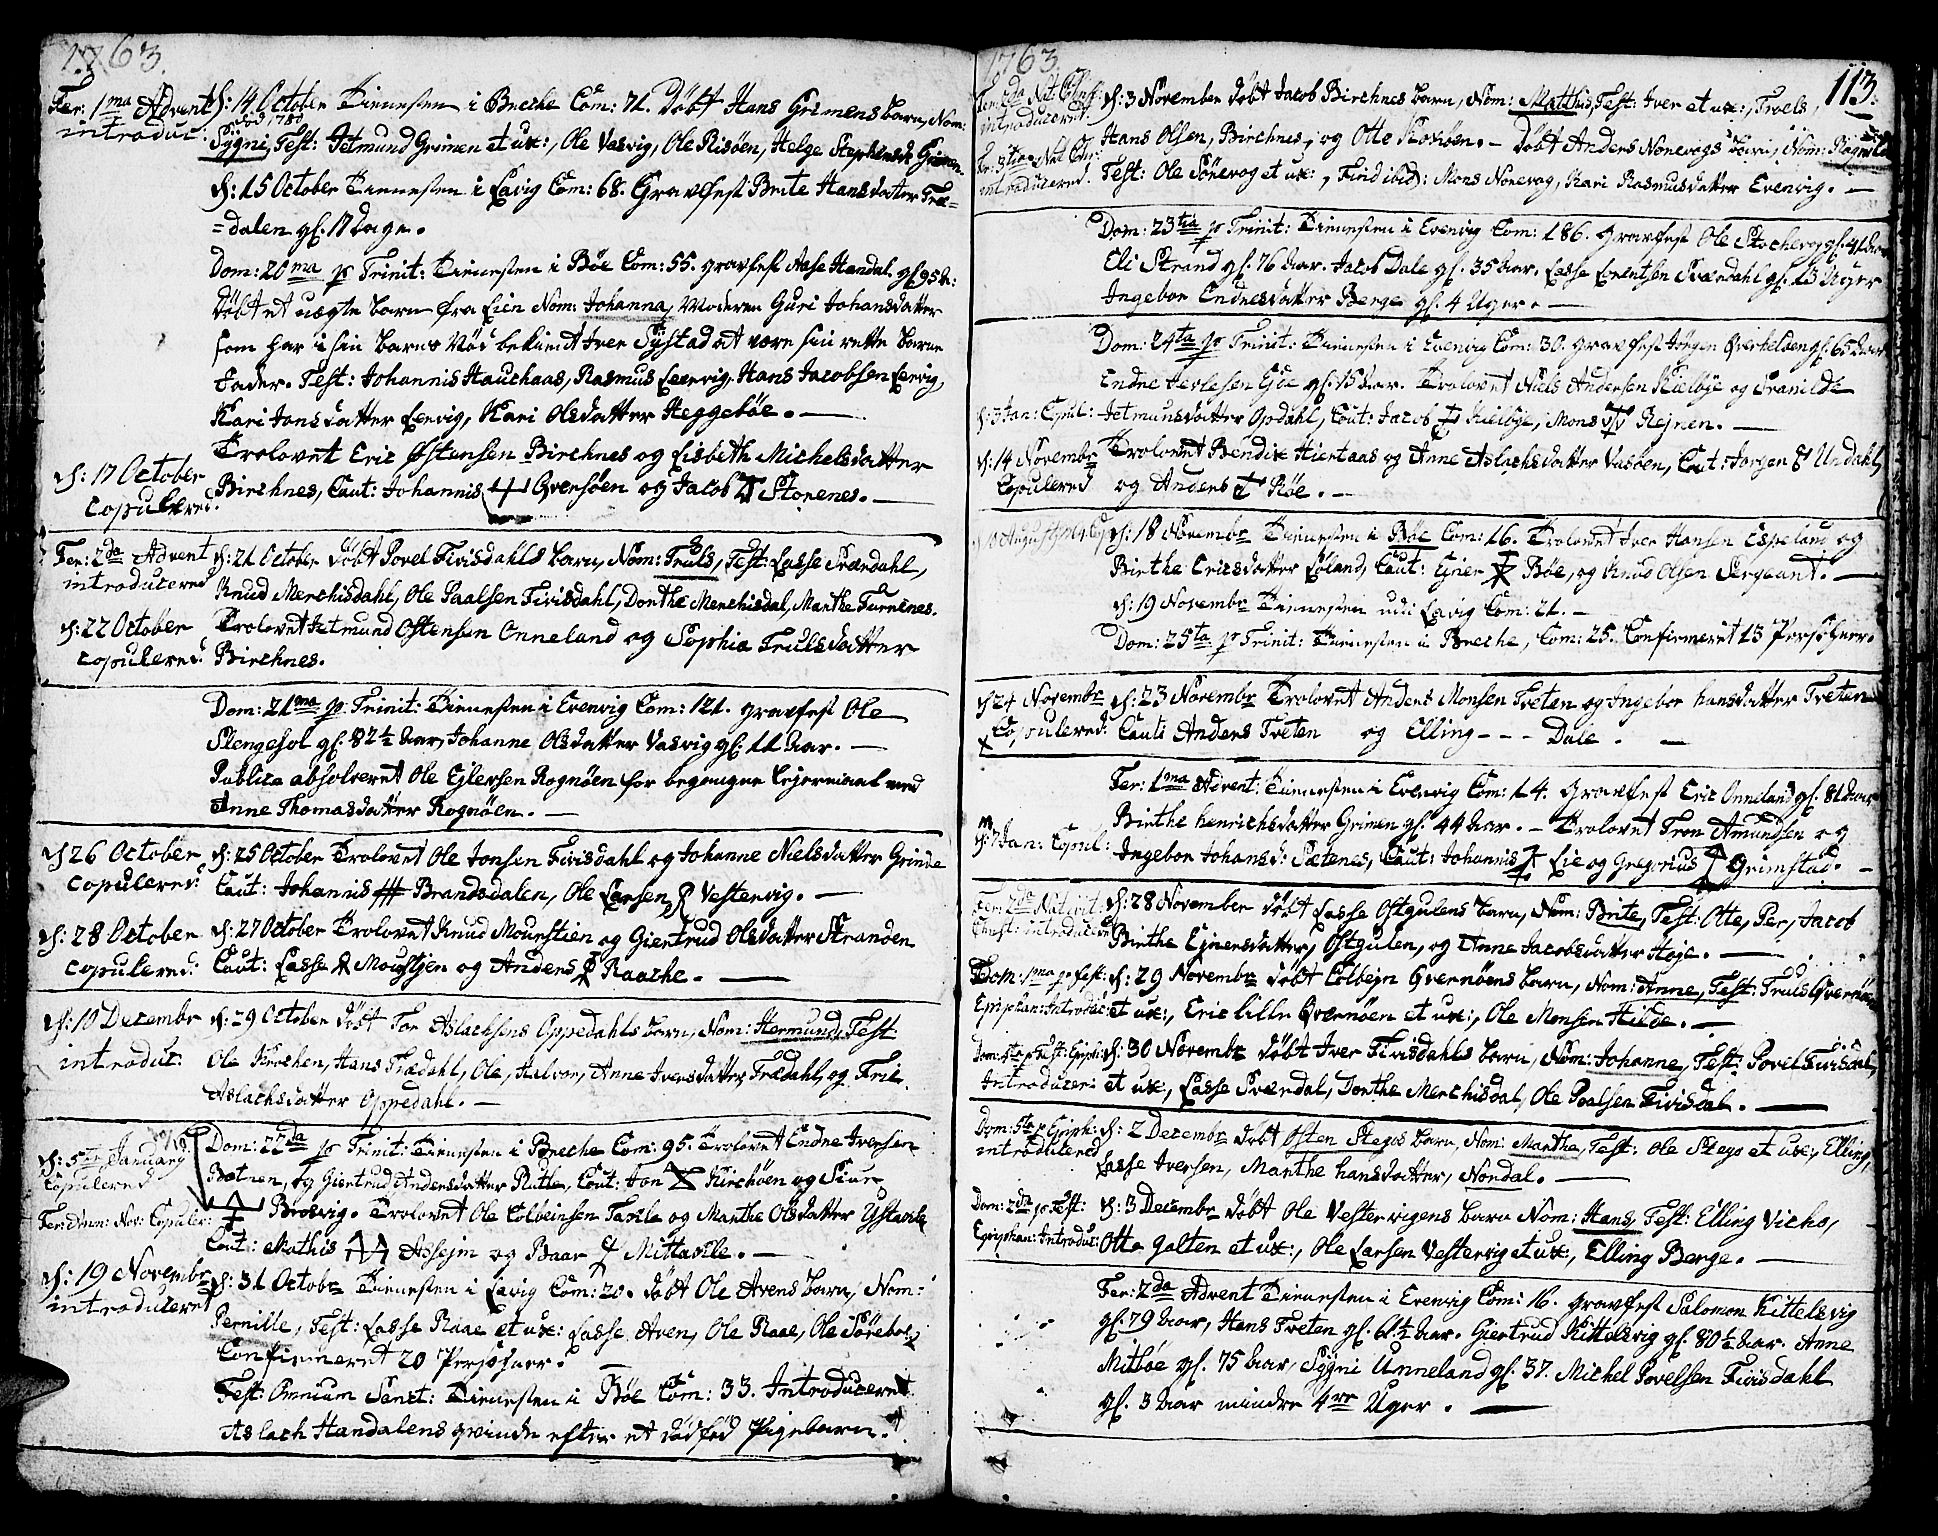 1763.
Fer: 1ma Advent
introduc:
d: 14 October Tienesten i Breche Com: 71. Døbt Hans Grimens barn, Nom:
død 1780
Sygni, Test: Jetmund Grimen et ux:, Ole Vasvig, Ole Risøen, Helge Stephensd: Grimen.
d: 15 October Tienesten i Lavig Com: 68. Gravfest Brite Hansdatter Træ=
=dalen gl. 17 Dage.
Dom: 20ma p Trinit: Tienesten i Bøe Com: 55. gravfest Aase Handal gl 95 A:
døbt et uægte barn fra Lien Nom: Johanna, Moderen Guri Johansdatter
som har i sin barns Nød bekiendt Iver Systad at være sin rette barne
Fader. Test: Johannis Hauchaas, Rasmus Leervig, Hans Jacobsen Lervig,
Kari Jonsdatter Lervig, Kari Olsdatter Heggebøe. —
d: 17 October
copulered.
Trolovet Eric Østensen Birchnes og Lisbeth Michelsdatter
Birchnes, Caut: Johannis Qversøen og Jacob Storenes. —
Fer: 2da Advent
introducered
d: 21 October døbt Povel Fivisdahls barn, Nom: Truls, Test: Lasse Sværdahl,
Knud Merchisdahl, Ole Paalsen Fivisdahl, Dorthe Merchisdal, Marthe Furenes.
d: 22 October
copulered:
Trolovet Jetmund Ostensen Onneland og Sophia Trulsdatter
Birchnes.
Dom: 21ma p Trinit: Tienesten i Evenvig Com: 121. gravfest Ole
Slengesol gl: 82½ Aar, Johanne Olsdatter Vasvig gl: 11 Aar. —
Publice absolveret Ole Ejlersen Rognøen for begangne Lejermaal med
Anne Thomasdatter Rognøen. —
d 26 October
copulered:
d: 25 October Trolovet Ole Jonsen Fivisdahl og Johanne Nielsdatter Grinde
Caut: Johannis Brandsdalen, Ole Larsen Vestervig. —
d: 28 October
copulered:
d: 27 October Trolovet Knud Mourstien og Giertrud Olsdatter Stranden
Caut: Lasse Moustjen og Anders Raache. —
d: 10 Decembr
introduc:
d: 29 October døbt Tor Aslachsens Oppedahls barn, Nom: Hermund, Test:
Ole Kirchen, Hans Trædahl, Ole, Halvor, Anne Iversdatter Trædahl, og
Aslachsdatter Oppedahl. —
d: 5te Januarij
Copulered
Dom: 22da p Trinit: Tienesten i Breche Com: 95. Trolovet Endne Iversen
Botnen, og Giertrud Andersdatter Rutle, Caut: Jon Kirchøen og Siur
Brosvig. Trolovet Ole Colbeinsen Tacle og Marthe Olsdatter Ystacle
Caut: Mathis Assejm og Baar Mittacle. —
d: 19 Novembr
introduceret
d: 31 Octobr Tienesten i Lavig Com: 20. døbt Ole Avens barn, Nom:
Pernille, Test: Lasse Raae et ux: Lasse Aven, Ole Raae, Ole Sørebøe
Confirmeret 20 Persohner.
Fest: Omnium Sanct: Tienesten i Bøe Com: 33. Introduceret
Aslach Handalens qvinde efter et dødfød Pigebarn.
1763.
113.
introduceret:
d: 3 November døbt Jacob Birchnes barn, Nom: Matthis, Test: Iver et ux:, Troels,
introducered.
Hans Olsen, Birchnes, og Otte Kovsøen. — Døbt Anders Nonevogs barn, Nom: Ragnilde
Test: Ole Sørevog et ux:, Find ibid: Mons Nonevog, Kari Rasmusdatter Evenvig. —
Dom: 23tia p Trinit: Tienesten i Evenvig Com: 186. gravfest Ole Stochevog gl. 41 Aar
Eli Strand gl. 76 Aar. Jacob Dale gl. 35 Aar. Lasse Lorentsen Sværdahl gl. 13 Uger
Ingebor Endresdatter Berge gl: 4 Uger. —
Dom: 24ta p Trinit: Tienesten i Evenvig Com: 30. gravfest Jørgen Qverhelven gl: 65 Aar
Endne Herlesen Giøe gl: 15 Aar. Trolovet Niels Andersen Kielbye og Franilde
d: 3 Jan: Copul:
Jetmunsdatter Opdahl, Caut: Jacob Kielbye, Mons Rejnen. —
d: 14 Novembr
Copulered
Trolovet Bendix Hiertaas og Anne Aslachsdatter Vasøen, Caut: Jørgen Undahl,
og Anders Røe. —
d: 18 Novembr Tienesten i Bøe Com: 16. Trolovet Iver Hansen Espeland og
Birthe Ericsdatter Eland, Caut: Ejner Bøe, og Knud Olsen Sergeant. —
d: 19 Novembr Tienesten udi Lavig Com: 21. —
Dom: 25ta p Trinit: Tienesten i Breche, Com: 25. Confirmeret 13 Persohner.
d 24 Novembr
Copulered:
d: 23 Novembr Trolovet Anders Monsen Tveten og Ingebor hansdatter Tveten
Caut: Anders Tveten og Elling - - - Dale. —
Fer: 1ma Advent: Tienesten i Evenvig Com: 14. Gravfest Eric Onneland gl. 81 Aar
Birthe Henrichsdatter Grimen gl. 44 Aar. — Trolovet Tron Amundsen og
d: 7 Jan: Copul:
Ingebor Johansd: Sætenes, Caut: Johannis Lie og Gregorius Grimstad. —
Fer: 2da Nativit:
Christ: introducered
d: 28 November døbt Lasse Ostgulens barn, Nom: Brite, Test: Otte, Per, Jacob
Birthe Ejnersdatter, Ostgulen, og Anne Jacobsdatter Høje. —
Dom: 1ma p Fest:
Epiphan: Introduc:
d: 29 Novembr døbt Colbejn Qvernøens barn, Nom: Anne, Test: Truls Qvernøen
et ux:, Eric lille Qvernøen et ux:, Ole Monsen Hilde. —
Dom: 5ta p Fest: Epiph:
Introducer:
d: 30 Novembr døbt Iver Fivisdahls barn, Nom: Johanne, Test: Povel Fivisdal,
et ux:, Lasse Sværdal, Dorthe Merchisdal, Ole Poalsen Fivisdal. —
Dom: 5ta p Epiph:
introducered
d: 2 Decembr døbt Osten Stegos barn, Nom: Marthe, Test: Ole Stego et ux:, Elling,
Lasse Iversen, Marthe hansdatter, Nordal. —
Dom: 2da p Fest:
Epiphan: Introduc:
d: 3 Decembr døbt Ole Vestervigens barn Nom: Hans, Test: Elling Vicho,
Otto Galten et ux:, Ole Larsen Vestervig et ux:, Elling Berge. —
Fer: 2da Advent Tienesten i Evenvig Com: 16. gravfest Salomon Kittelsvig
gl: 79 Aar, Hans Tveten gl. 61½ Aar. Giertrud Kittelsvig gl. 80½ Aar. Anne
Mitbøe gl. 75 Aar, Sygni Unneland gl: 37. Michel Povelsen Fivisdahl
gl. 3 Aar mindre 4re Uger. —